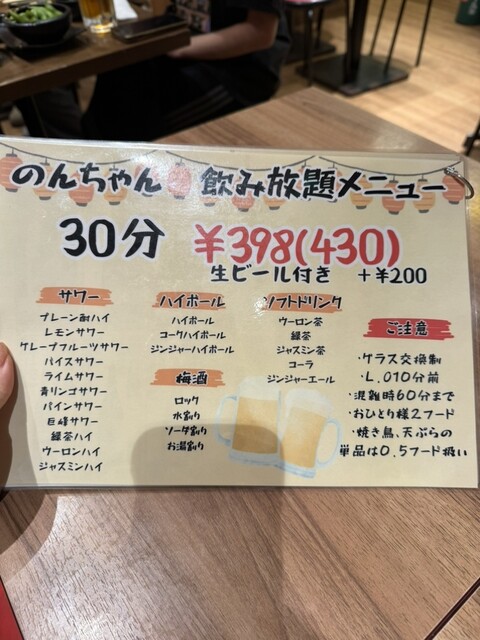 のんちゃん 飲み放題メニュー
30分 ¥398(430)
生ビール付き +¥200
サワー
プレーン酎ハイ
レモンサワー
グレープフルーツサワー
パイスサワー
ライムサワー
青リンゴサワー
パインサワー
巨峰サワー
緑茶ハイ
ウーロンハイ
ジャスミンハイ
ハイボール
ハイボール
コークハイボール
ジンジャーハイボール
梅酒
ロック
水割り
ソーダ割り
お湯割り
ソフトドリンク
ウーロン茶
緑茶
ジャスミン茶
コーラ
ジンジャーエール
ご注意
・グラス交換制
・L.O10分前
・混雑時60分まで
・おひとり様2フード
・焼き鳥、天ぷらの
単品は0.5フード扱い